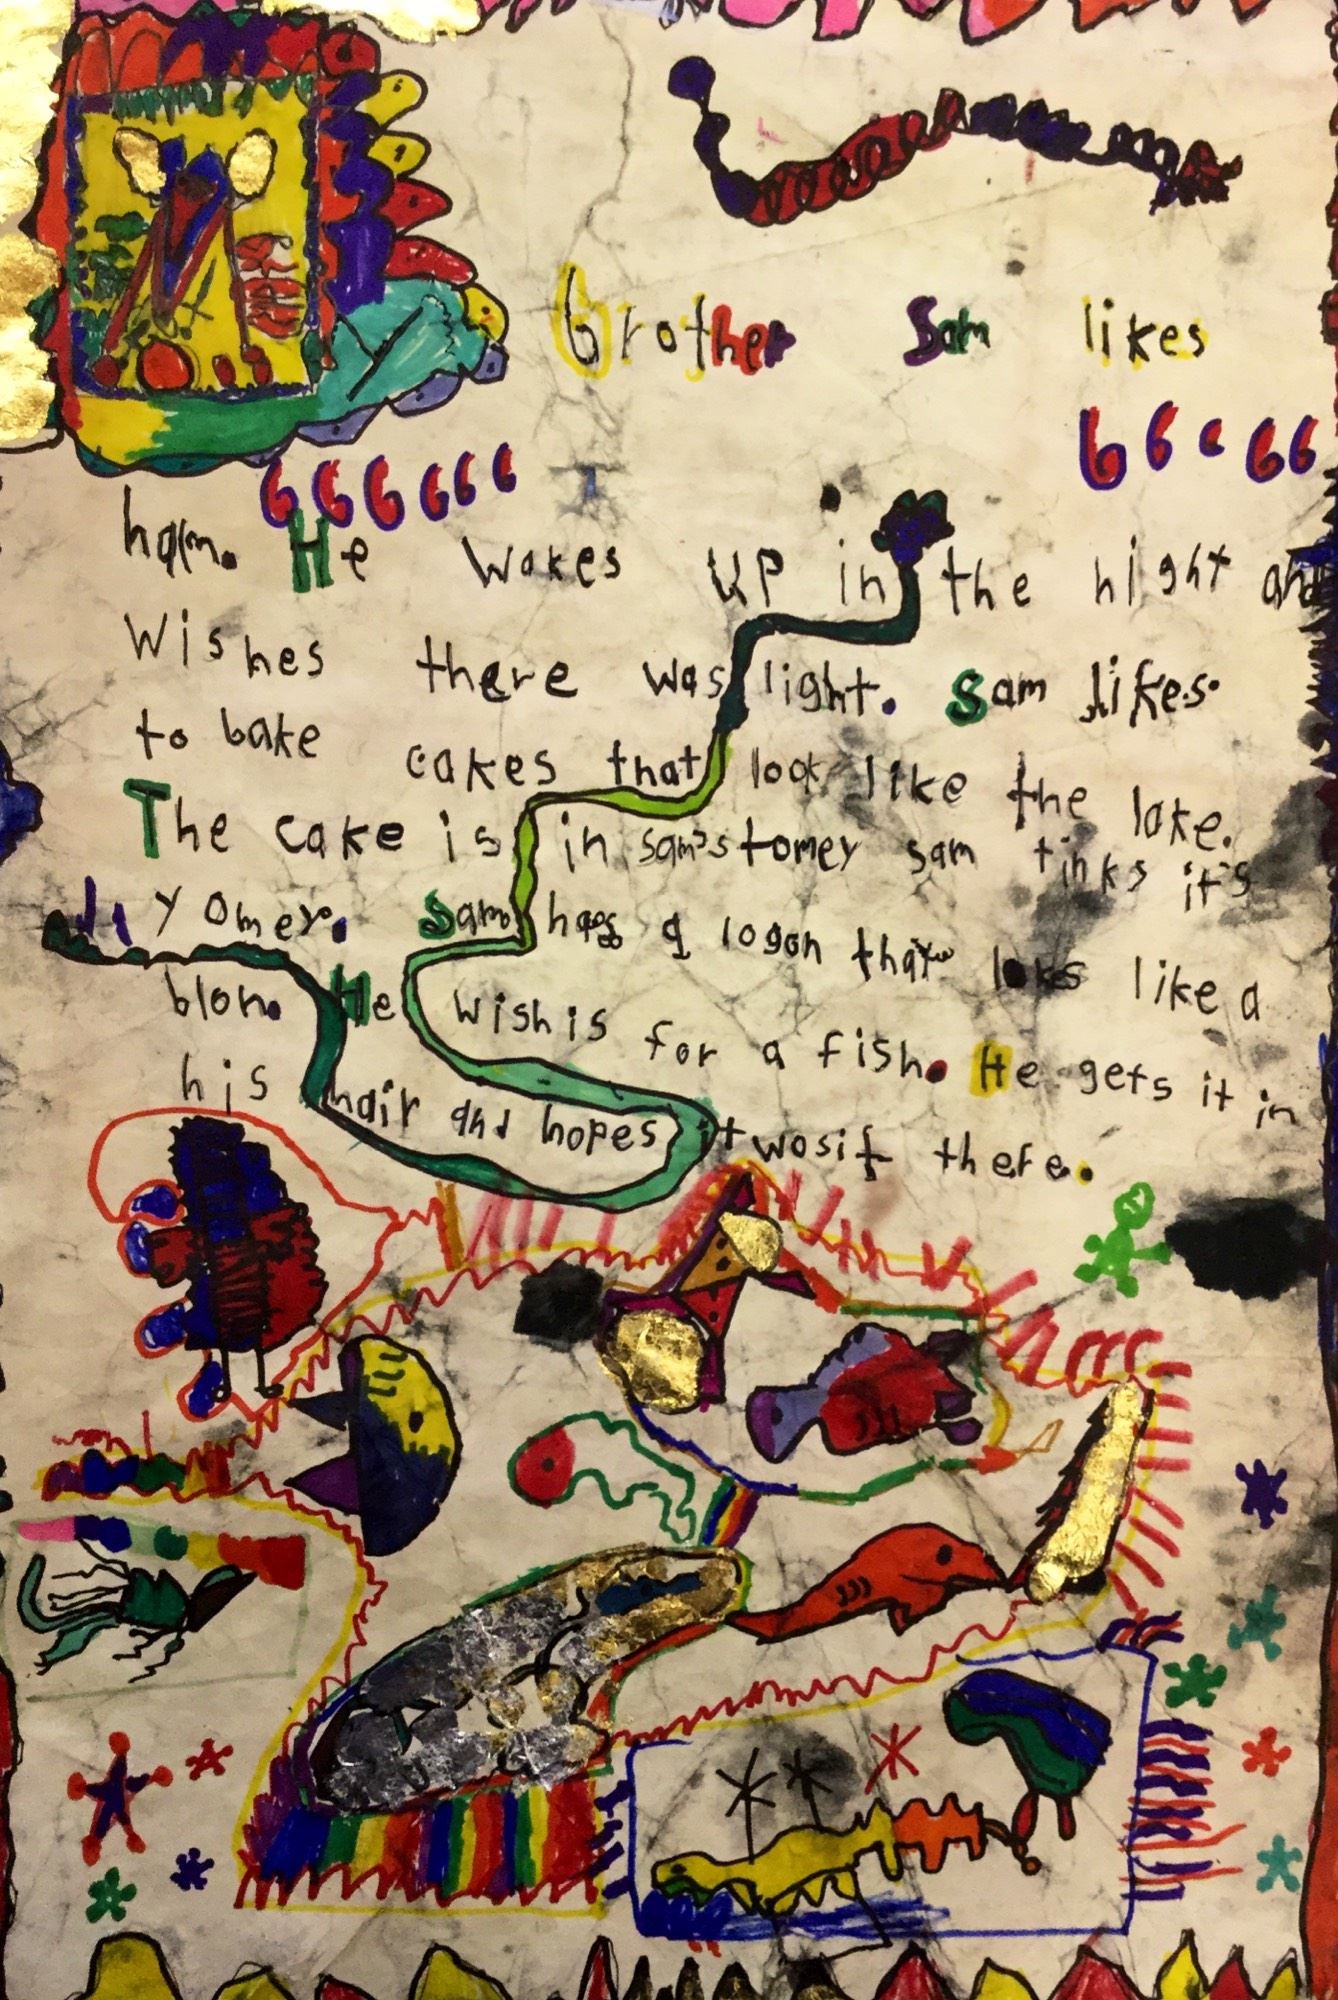 brother Sam likes
ham. He wakes up in the night and
wishes there was light. Sam likes
to bake cakes that look like the lake.
The cake is in sam's tomey sam tinks it's
yomey. Sam has a logon that lokes like a
blon. He wishis for a fish. He gets it in
his hair and hopes it wosit there.